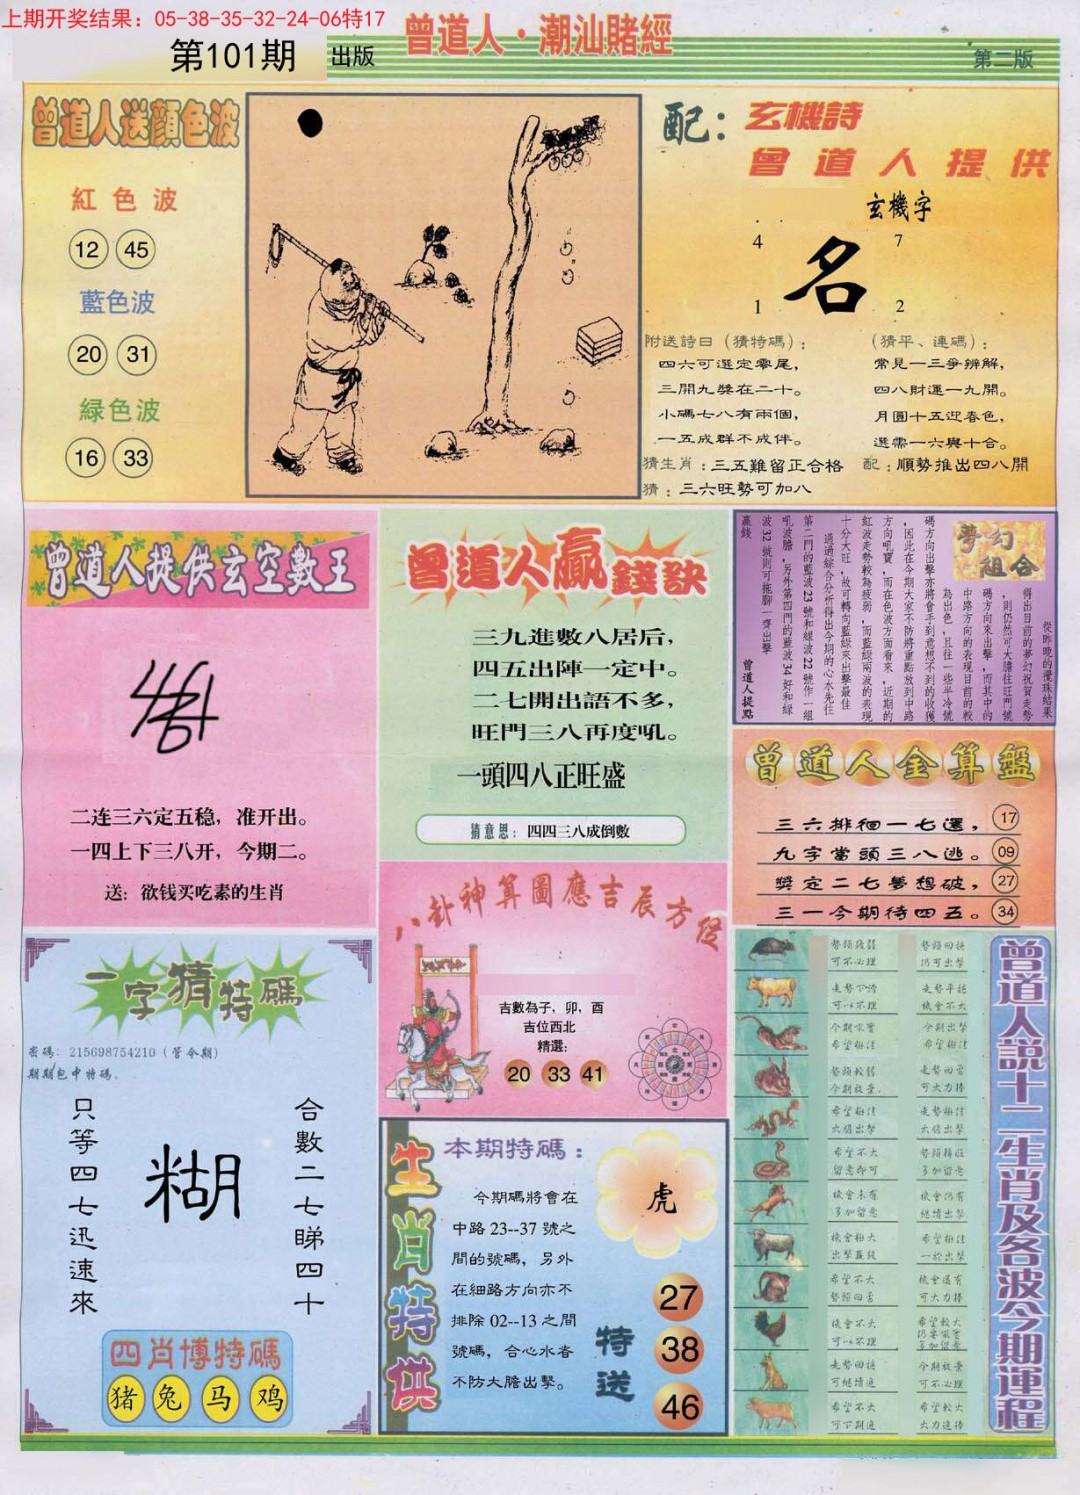 上期开奖结果：05-38-35-32-24-06特17
第101期
出版
曾道人·潮汕賭經
第二版
曾道人送顏色波
紅色波
12 45
藍色波
20 31
緑色波
16 33
配：玄機詩
曾道人提供
玄機字
4 7
名
1 2
附送詩曰（猜特碼）：
四六可選定零尾，
三開九獎在二十。
小碼七八有兩個，
一五成群不成伴。
猜生肖：三五難留正合格
猜：三六旺勢可加八
（猜平、連碼）：
常見一三爭辨解，
四八財運一九開。
月圓十五迎春色，
選需一六與十合。
配：順勢推出四八開
曾道人提供玄空數王
二连三六定五稳，准开出。
一四上下三八开，今期二。
送：欲钱买吃素的生肖
曾道人贏錢訣
三九進數八居后，
四五出陣一定中。
二七開出語不多，
旺門三八再度吼。
一頭四八正旺盛
猜意思：四四三八成倒數
夢幻組合
從昨晚的攪珠結果
得出目前的夢幻祝賀走勢
，則仍然可大膽往旺門號
碼方向來出擊，而其中的
中路方向的表現目前的較
為出色，且往一些半冷號
碼方向出擊亦將會手到意想不到的收獲
，因此在今期大家不防將重點放到中路
方向吼寶，而在色波方面看來，近期的
紅波走勢較為疲弱，而藍綠兩波的表現
十分大旺，故可轉向藍綠來出擊最佳
通過綜合分析得出今期的心水先往
第二門的藍波23號和綠波22號作一組
吼波膽，另外第四門的藍波34好和綠
波32號則可拖腳一齊出擊
贏錢
曾道人提點
曾道人金算盤
三六排徊一七選， 17
九字當頭三八逃。 09
獎定二七夢想破， 27
三一今期待四五。 34
八卦神算圖應吉辰方位
吉數為子，卯，酉
吉位西北
精選：
20 33 41
一字猜特碼
密碼：215698754210（管令期）
期期包中特碼。
只等四七迅速來
糊
合數二七睇四十
四肖博特碼
猪 兔 马 鸡
生肖特供
本期特碼：
今期碼將會在
中路23--37號之
間的號碼，另外
在細路方向亦不
排除02--13之間
號碼，合心水者
不防大膽出擊。
虎
特送
27
38
46
曾道人說十二生肖及各波今期運程